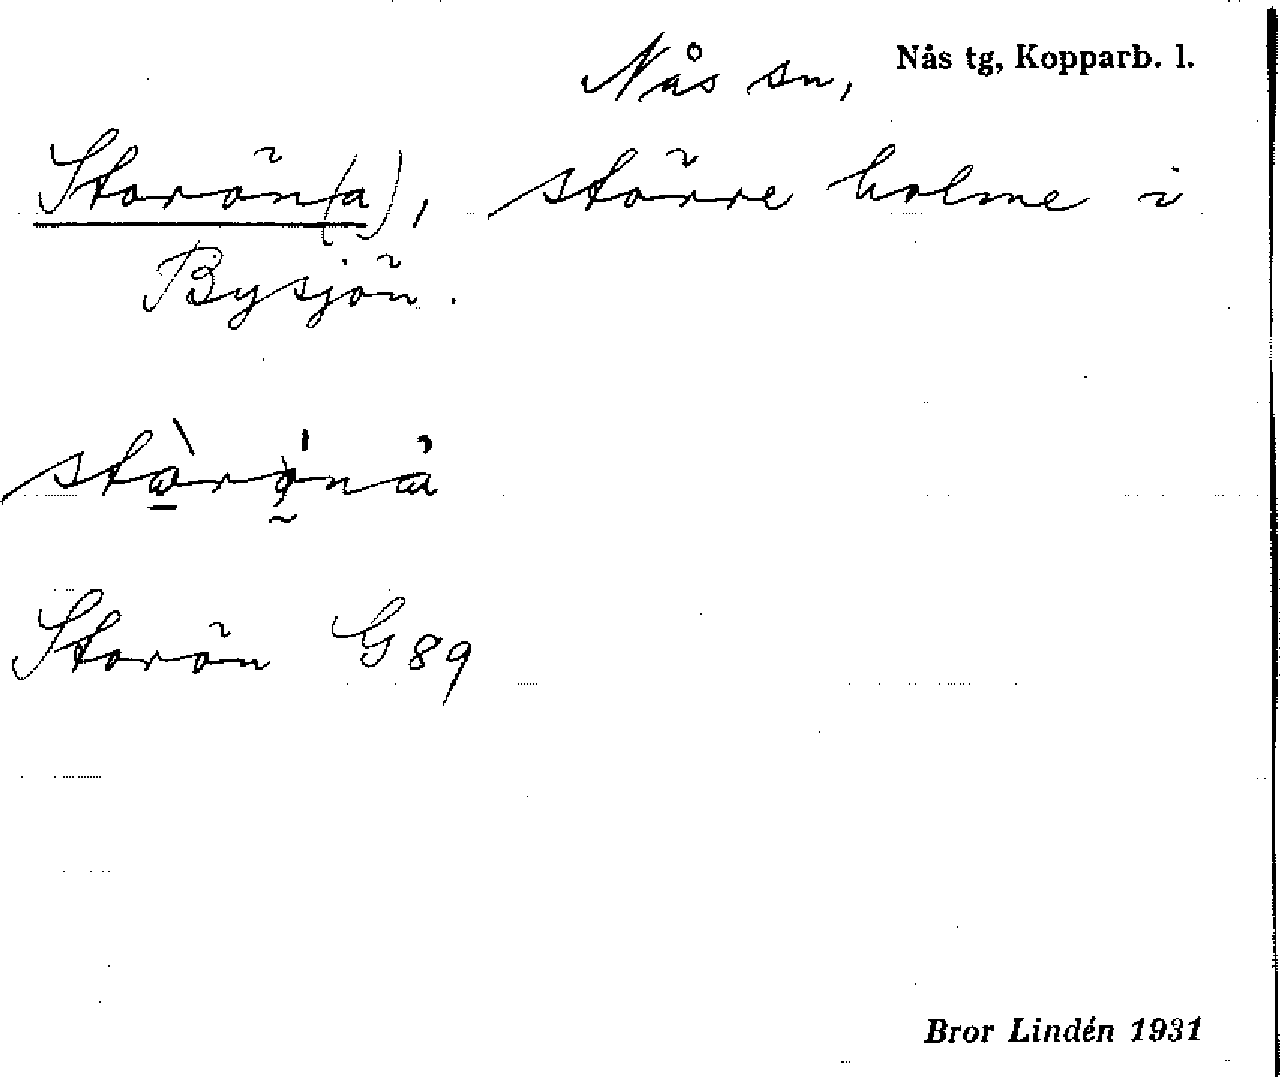 Nås sn, Nås tg, Kopparb. l.
Storön(a), större holme i
Bysjön.
Storön G 89
Bror Lindén 1931